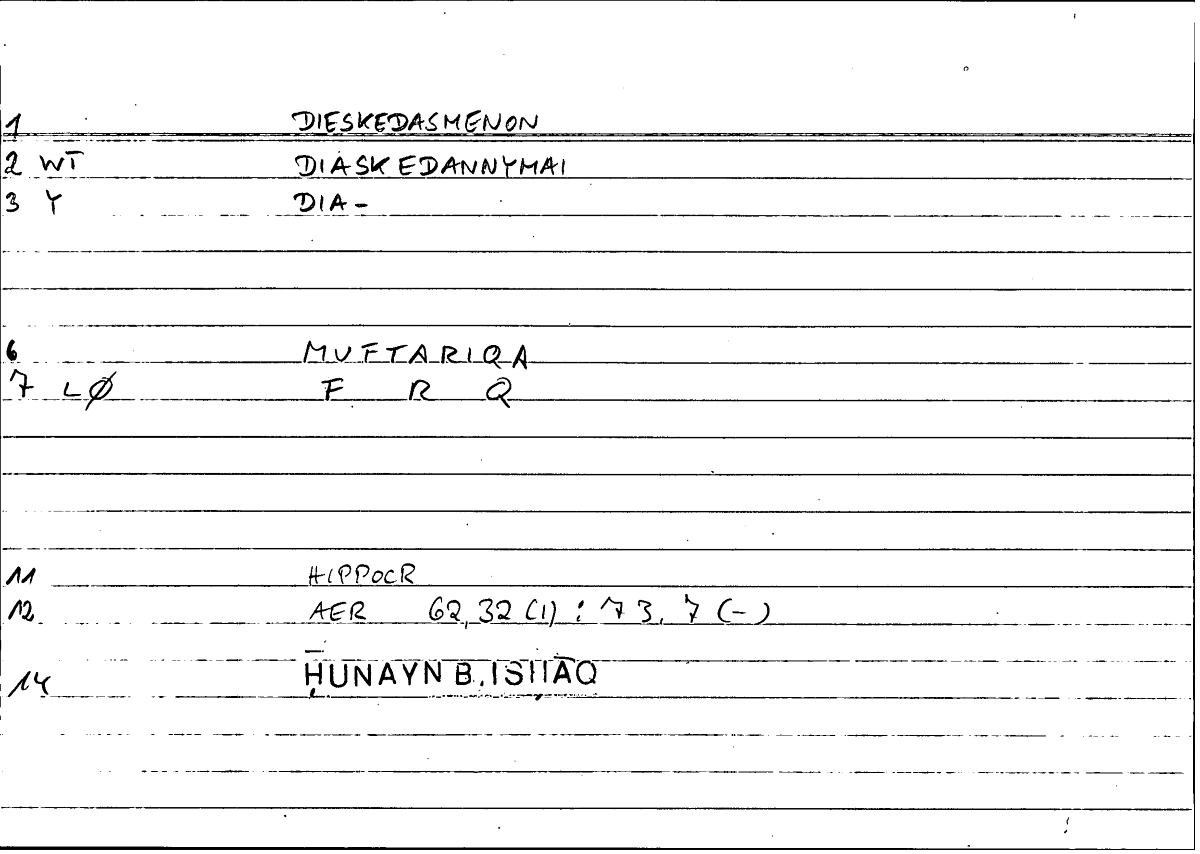 1 DIESKEDASMENON
2 WT DIASKEDANNYMAI
3 Y DIA-
6 MUFTARIQA
7 LØ F R Q
11 HIPPOCR
12 AER 62,32 (1) : 73, 7 (-)
14 ḤUNAYN B. ISḤĀQ